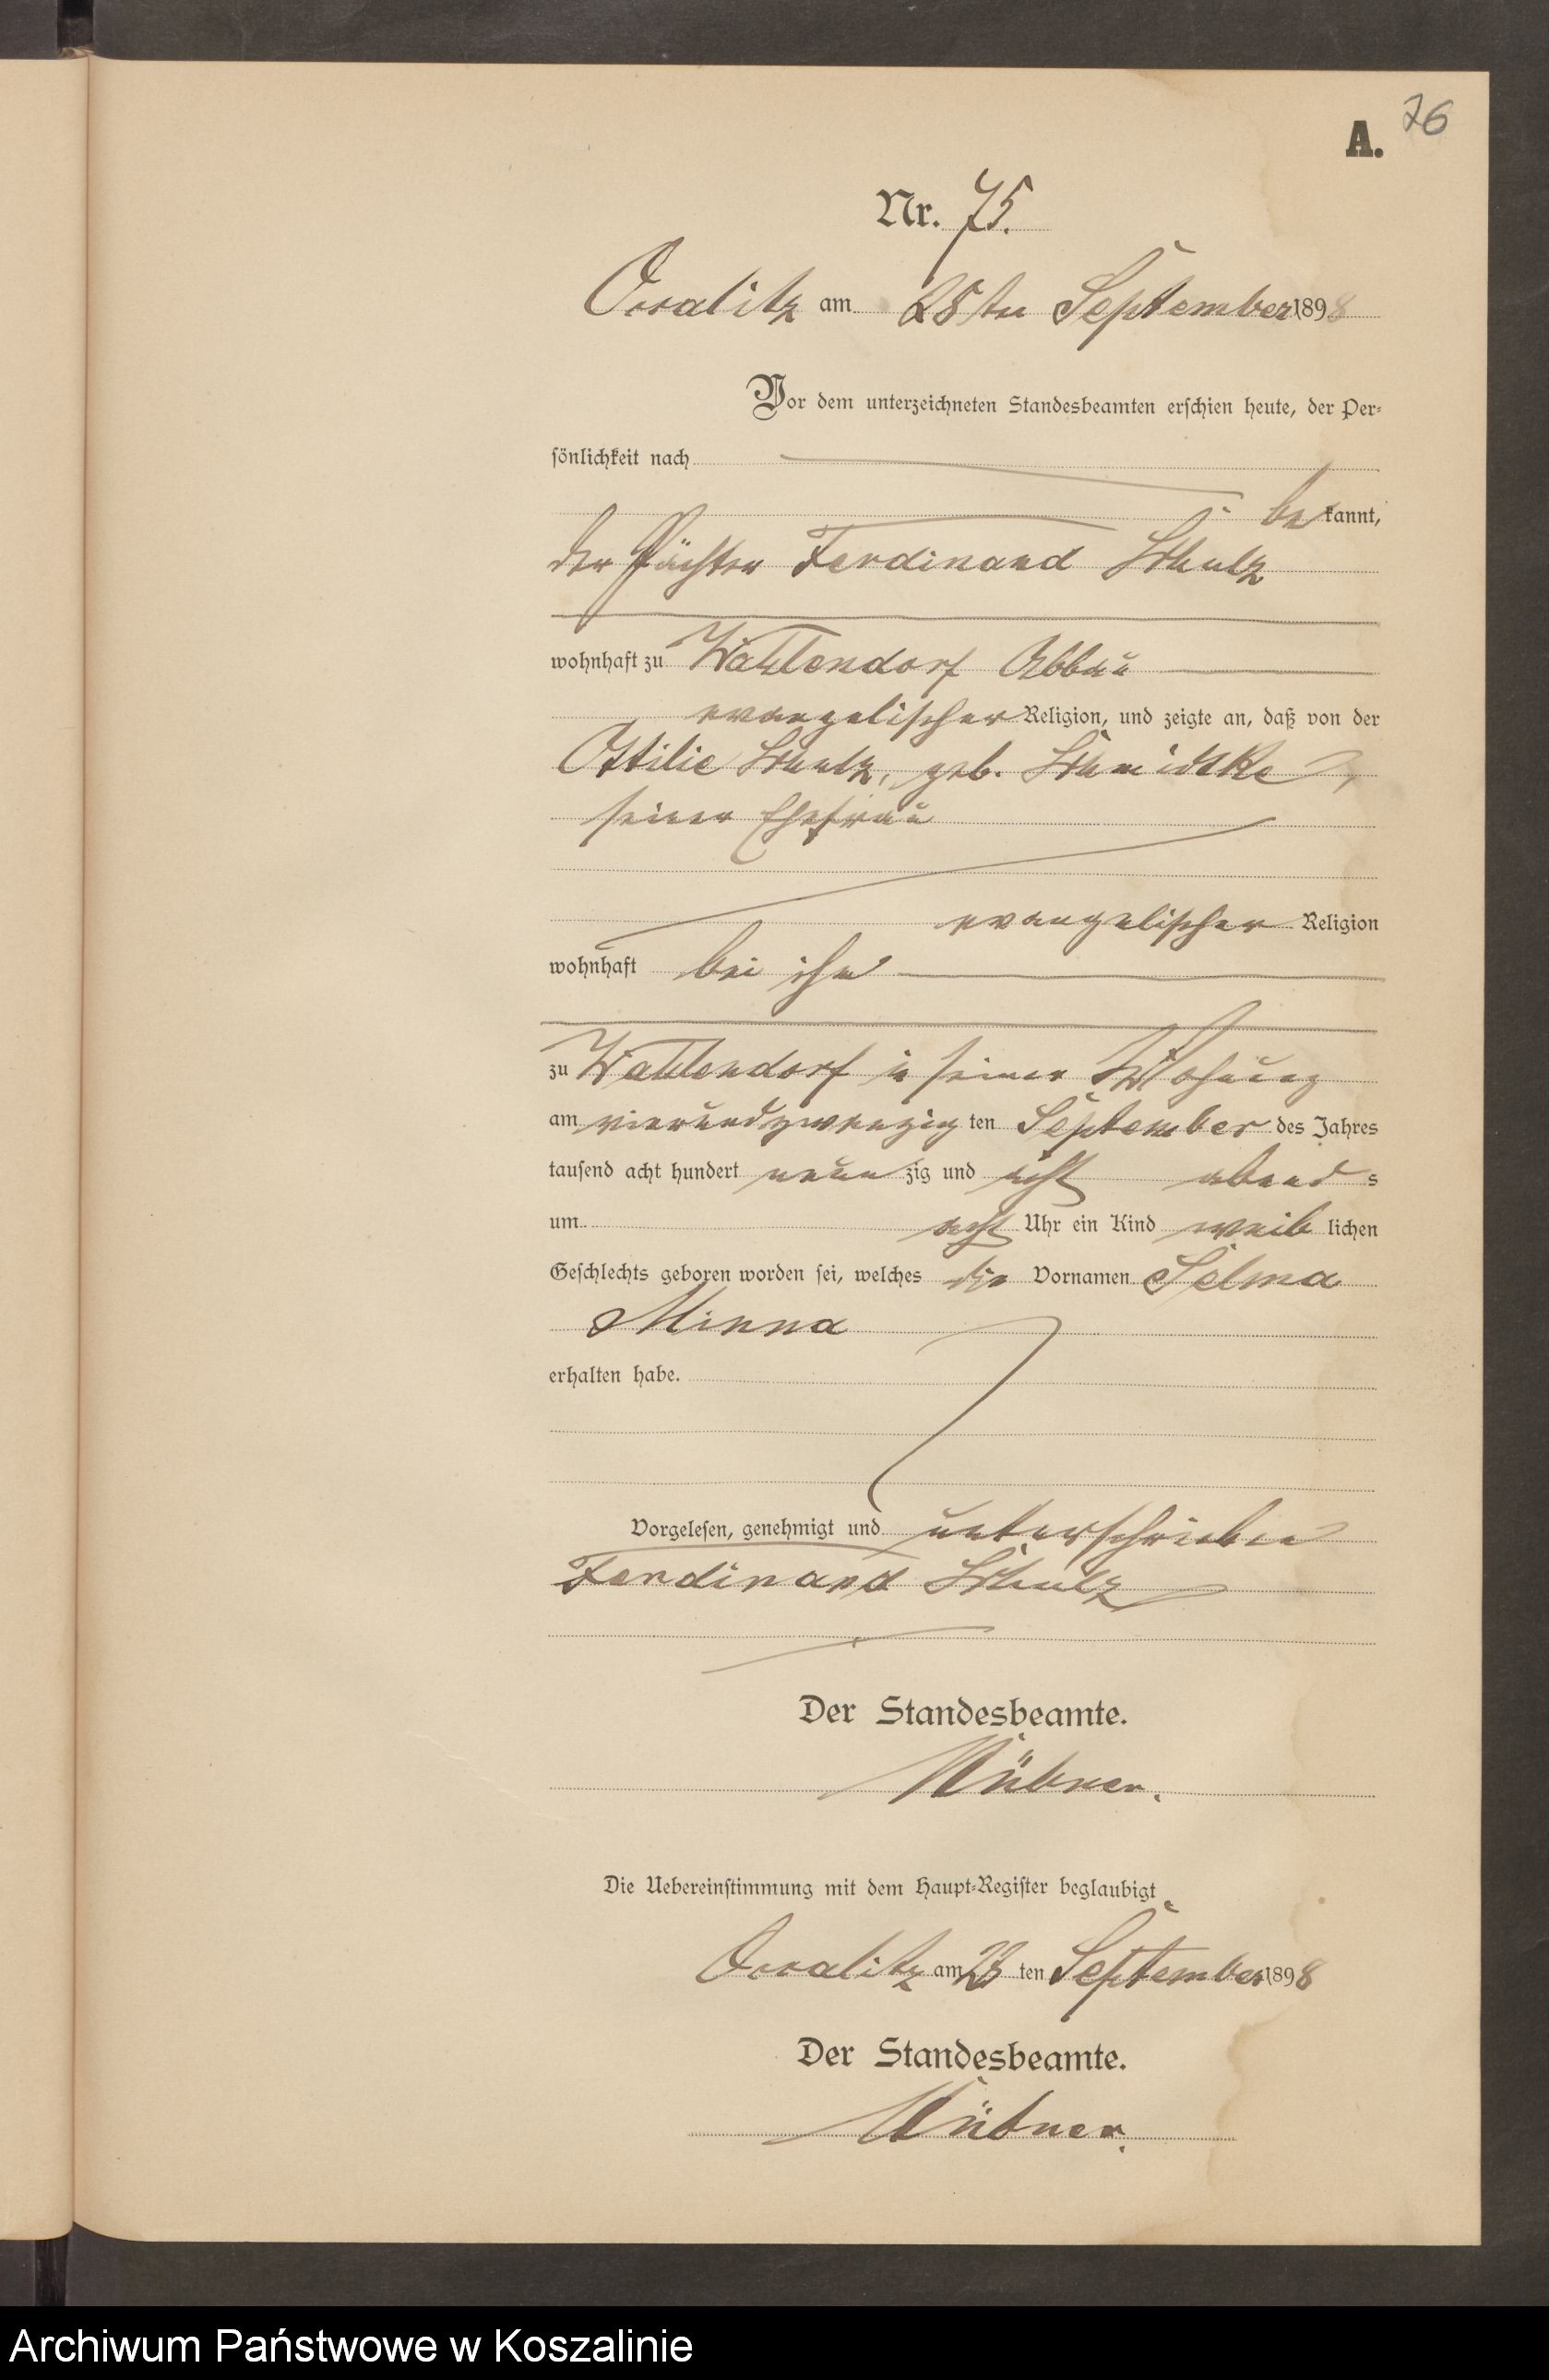 A. 76
Nr. 75.
Occalitz am 28ten September 1898
Vor dem unterzeichneten Standesbeamten erschien heute, der Per-
sönlichkeit nach
bekannt,
der Pächter Ferdinand Schulz
wohnhaft zu Wahlendorf Abbau
evangelischer Religion, und zeigte an, daß von der
Ottilie Schulz, geb. Schmidtke,
seiner Ehefrau
evangelischer Religion
wohnhaft bei ihm
zu Wahlendorf in seiner Wohnung
am vierundzwanzig ten September des Jahres
tausend acht hundert neun zig und acht abend s
um acht Uhr ein Kind weib lichen
Geschlechts geboren worden sei, welches die Vornamen Selma
Minna
erhalten habe.
Vorgelesen, genehmigt und unterschrieben
Ferdinand Schulz
Der Standesbeamte.
Die Uebereinstimmung mit dem Haupt-Register beglaubigt
Occalitz am 28 ten September 1898
Der Standesbeamte.
Archiwum Państwowe w Koszalinie